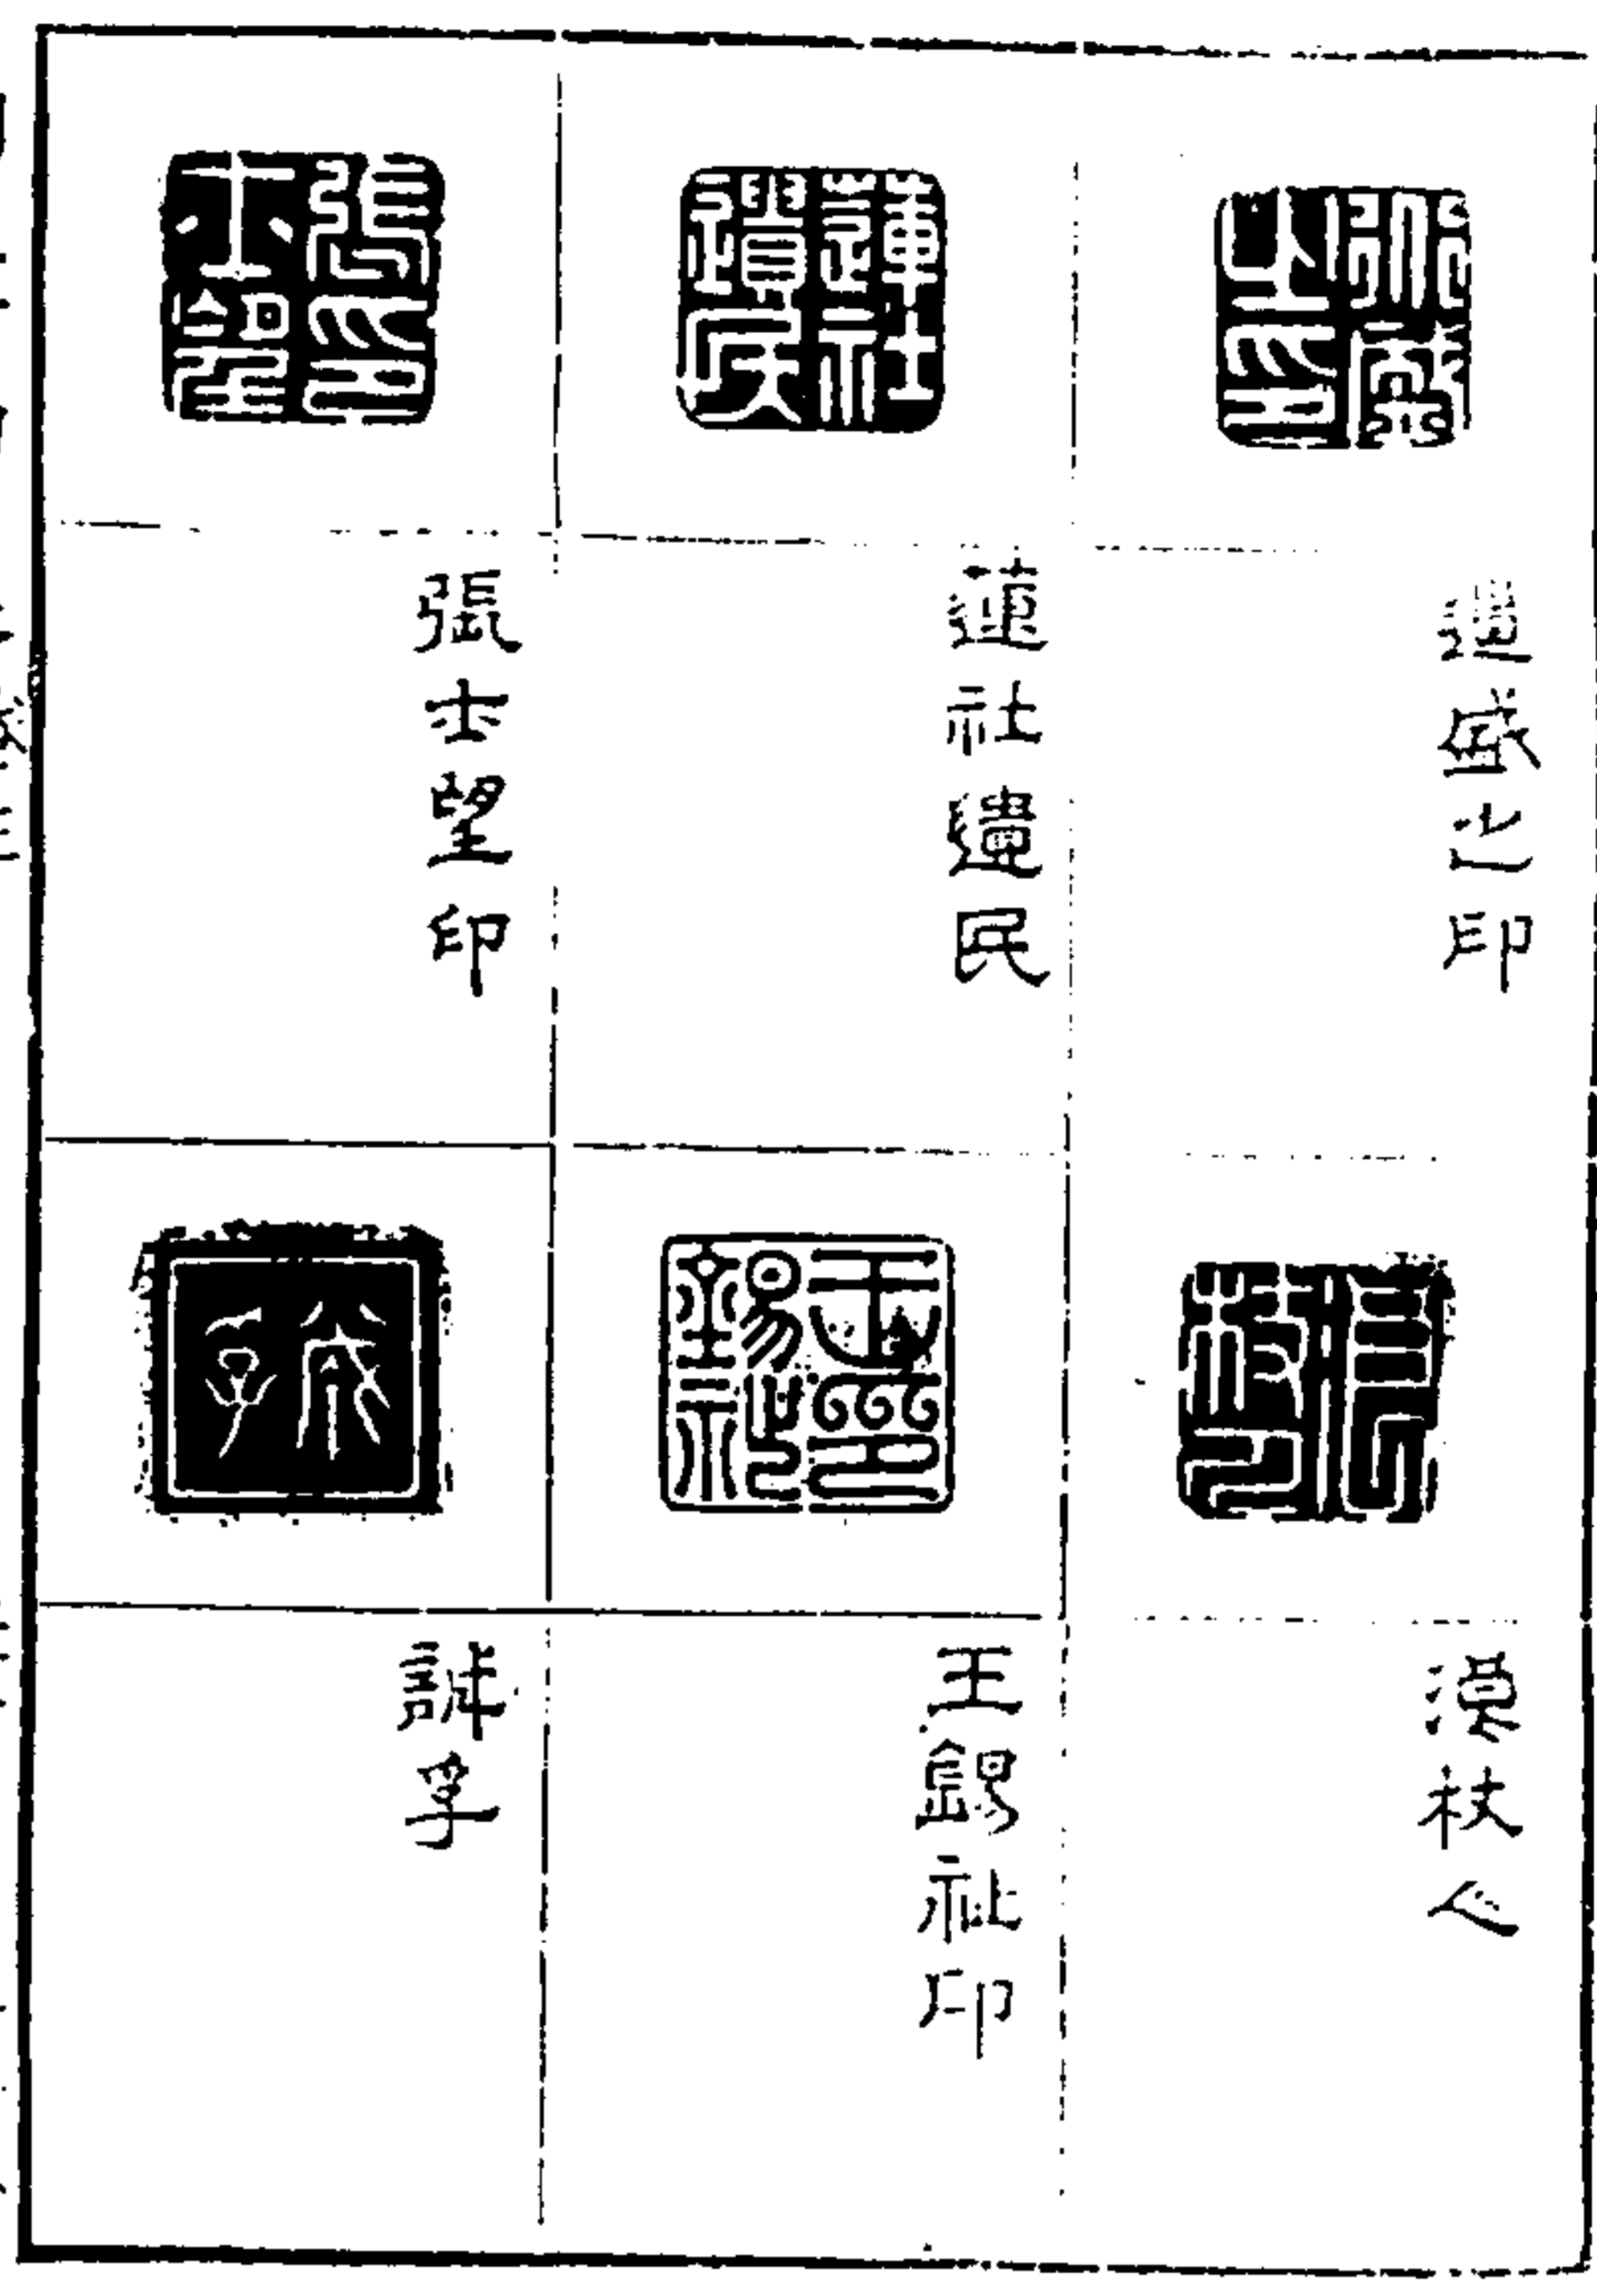 道盛之印
蓮社遺民
張士望印
浪杖人
王錫祉印
誠孚